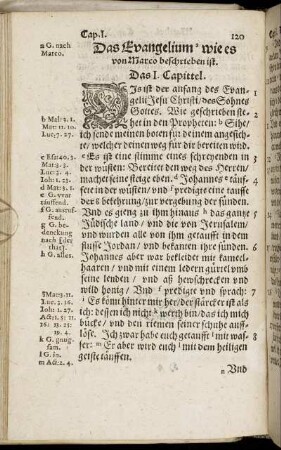 Cap. I. 120
Das Evangelium a wie es
von Marco beschrieben ist.
Das I. Capittel.
DIs ist der anfang des Evan-
gelii Jesu Christi / des Sohnes
Gottes. Wie geschrieben ste-
het in den Propheten: b Sihe /
ich sende meinen boten für deinem angesich-
te / welcher deinen weg für dir bereiten wird.
c Es ist eine stimme eines schreyenden in
der wüsten: Bereitet den weg des Herren /
machet seine steige eben. d Johannes e täuf-
fete in der wüsten / und f predigte eine tauffe
der g bekehrung / zur vergebung der sünden.
Und es gieng zu ihm hinaus h das gantze
Jüdische land / und die von Jerusalem /
und wurden alle von ihm getaufft in dem
flusse Jordan / und bekanten ihre sünden.
Johannes aber war bekleidt mit kameel-
haaren / und mit einem ledern gürtel umb
seine lenden / und aß hewschrecken und
wild honig. Und predigte und sprach:
i Es köm hinter mir her / der stärcker ist als
ich: dessen ich nicht k wehrt bin / das ich mich
bücke / und den riemen seiner schuhe auff-
löse. Ich zwar habe euch getaufft l mit was-
ser: m Er aber wird euch l mit dem heiligen
geiste täuffen.
n Und
a G. nach
Marco.
b Mal: 3. 1.
Mat: 11. 10
Luc: 7. 27.
c Esa: 40. 3.
Mat: 3. 3.
Luc: 3. 4.
Joh: 1. 23.
d Mat: 3. 1.
h G. alles.
k G. gnug-
sam.
l G. in.
m Act: 2. 4.
1
2
3
4
5
6
7
8